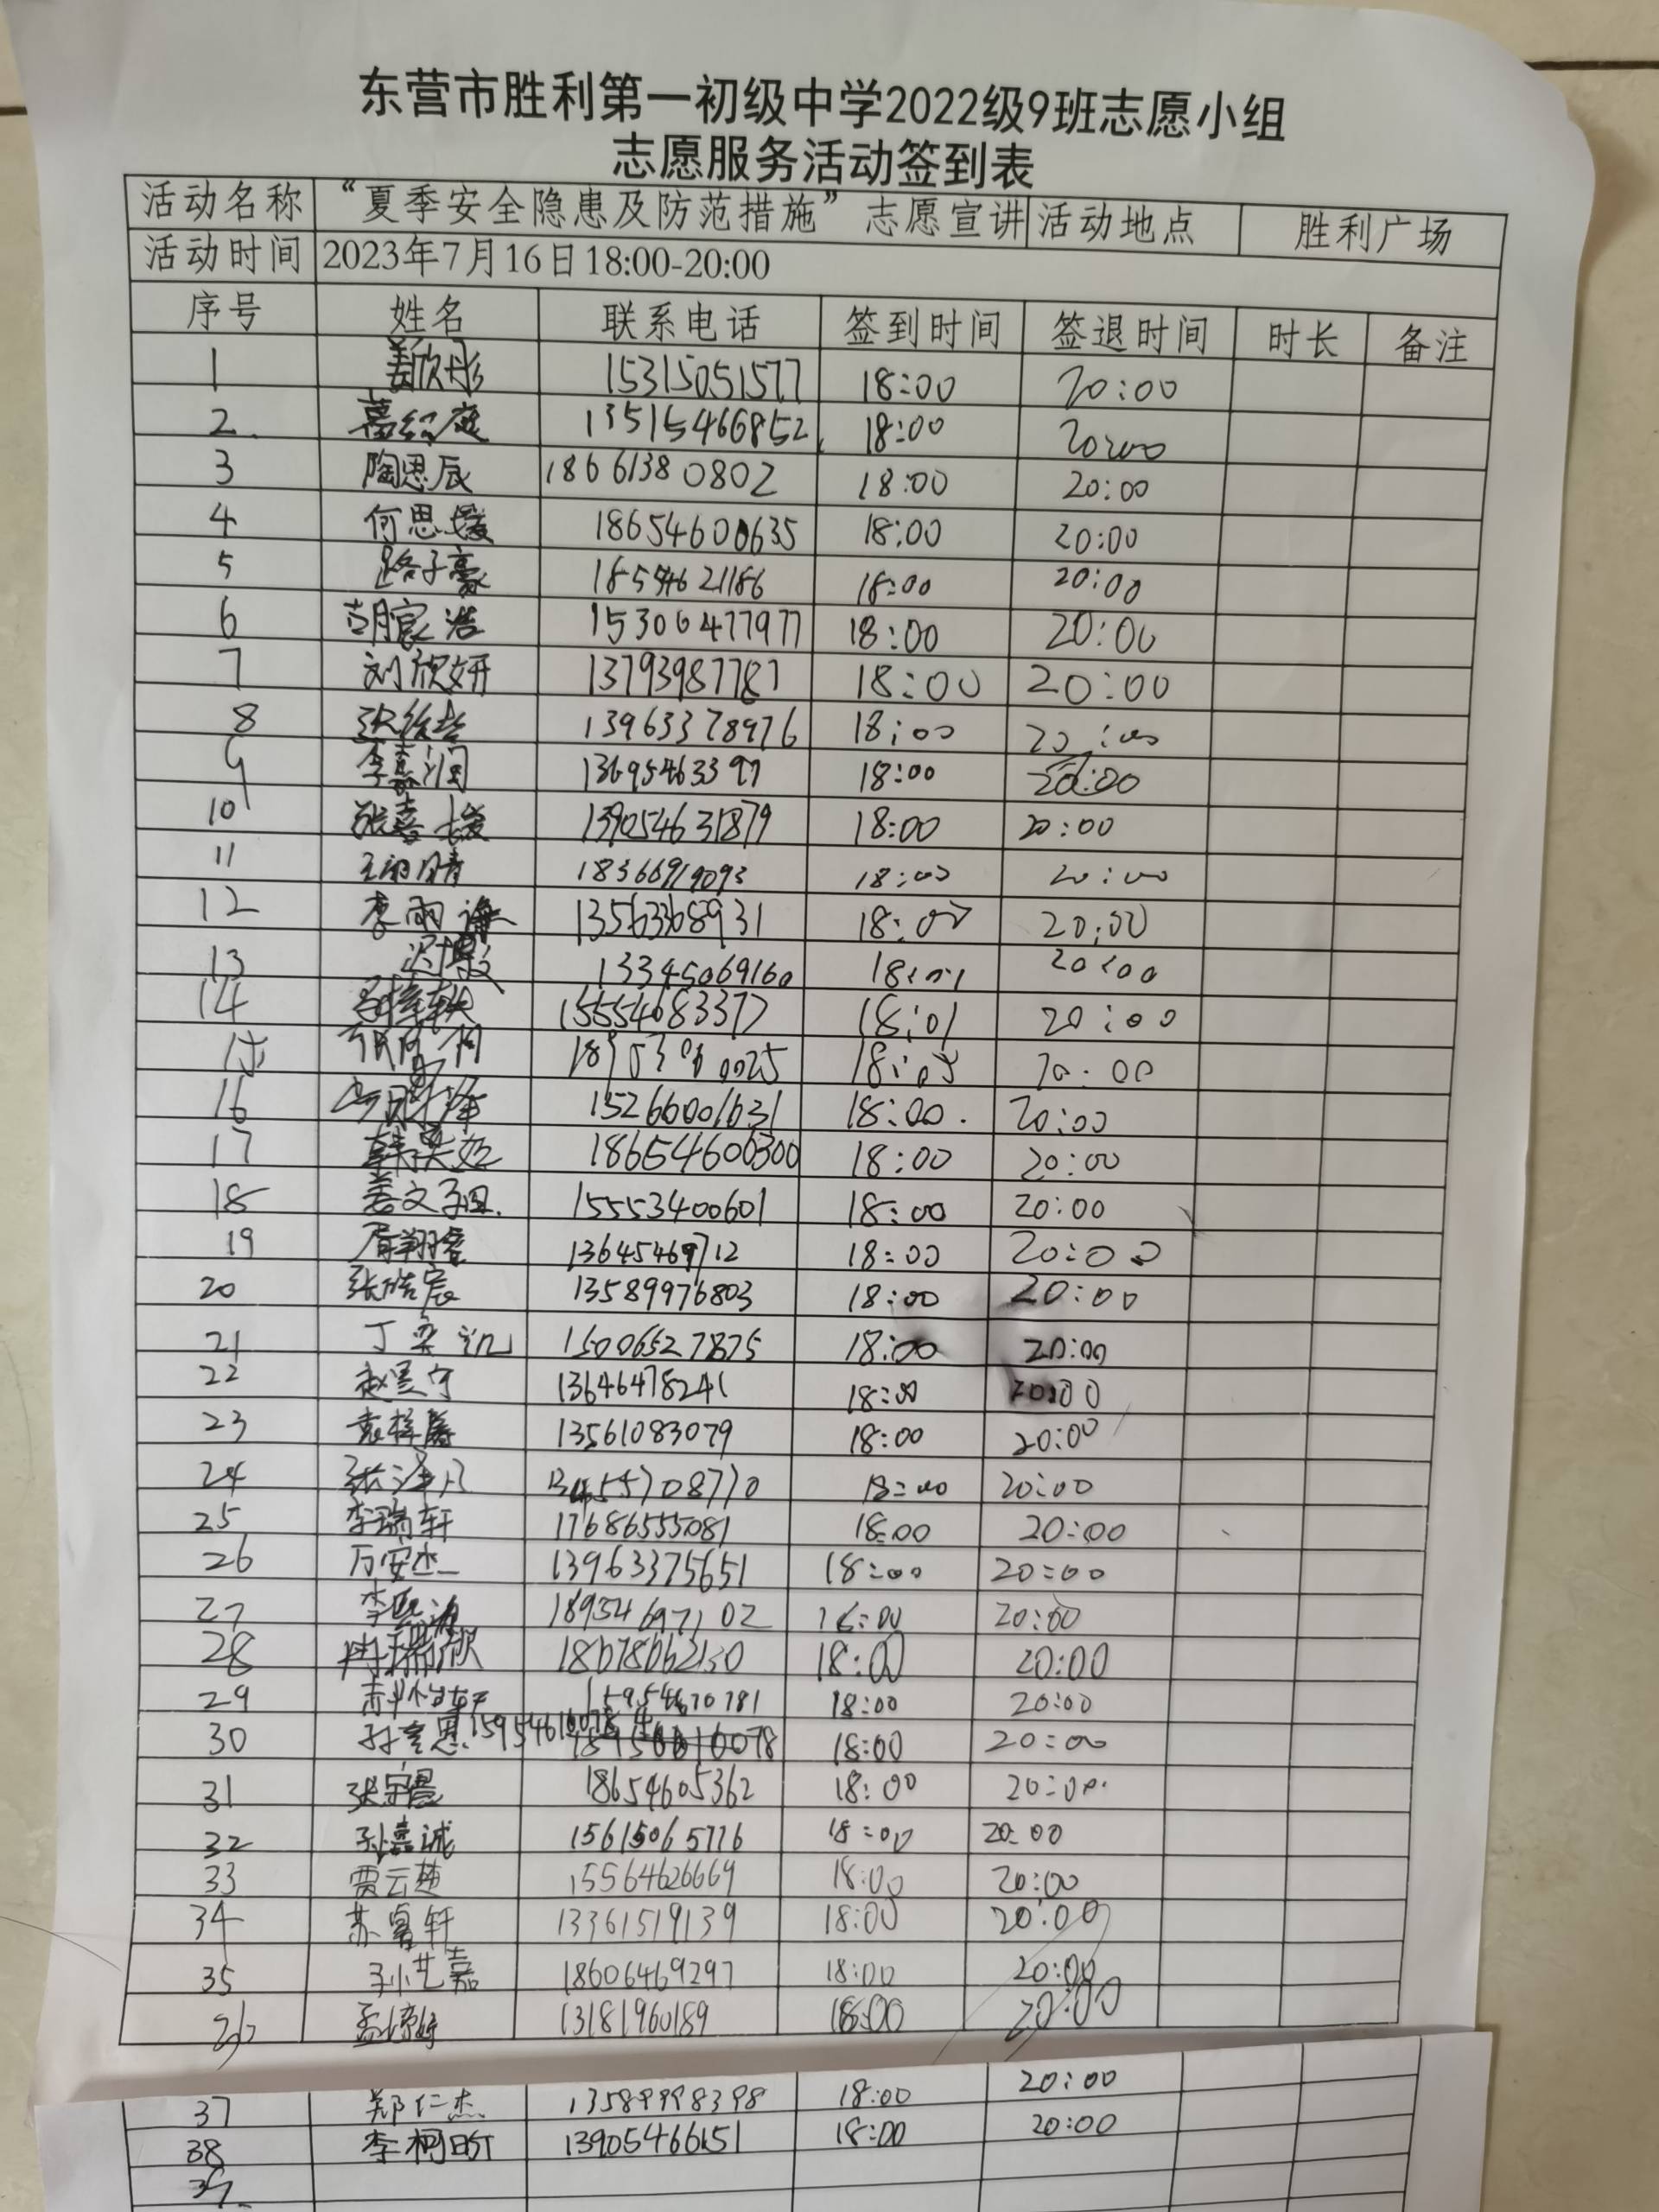 东营市胜利第一初级中学2022级9班志愿小组
志愿服务活动签到表
活动名称 “夏季安全隐患及防范措施”志愿宣讲 活动地点 胜利广场
活动时间 2023年7月16日18:00-20:00
序号 姓名 联系电话 签到时间 签退时间 时长 备注
1 姜欣彤 15315051577 18:00 20:00
2 葛绍庭 13515466852 18:00 20:00
3 陶思辰 18661380802 18:00 20:00
4 何思媛 18654600635 18:00 20:00
5 路子豪 18554621186 18:00 20:00
6 胡宸浩 15306477977 18:00 20:00
7 刘欣妍 13793987787 18:00 20:00
8 13963378976 18:00 20:00
9 李嘉润 13695463397 18:00 20:00
10 139054631879 18:00 20:00
11 18366919093 18:00 20:00
12 李雨谦 13563368931 18:00 20:00
13 13345069160 18:01 20:00
14 15554683377 18:01 20:00
15 18:05 20:00
16 15266001631 18:00. 20:00
17 18654600300 18:00 20:00
18 姜文 15553400601 18:00 20:00
19 13645469712 18:00 20:00
20 张皓宸 13589976803 18:00 20:00
21 丁奕凯 15006527875 18:00 20:00
22 13646478241 18:00 20:00
23 袁梓馨 13561083079 18:00 20:00
24 张泽凡 18:00 20:00
25 李瑞轩 17686555081 18:00 20:00
26 万安杰 13963375651 18:00 20:00
27 18954697102 18:00 20:00
28 冉瑞欣 18678662130 18:00 20:00
29 15954670781 18:00 20:00
30 18:00 20:00
31 18654605362 18:00 20:00
32 孙嘉诚 15615065776 18:00 20:00
33 贾云赫 15564626669 18:00 20:00
34 苏睿轩 13361519139 18:00 20:00
35 孙艺嘉 18606469297 18:00 20:00
36 13181960189 18:00 20:00
37 郑仁杰 13589998398 18:00 20:00
38 李柯昕 13905466151 18:00 20:00
39